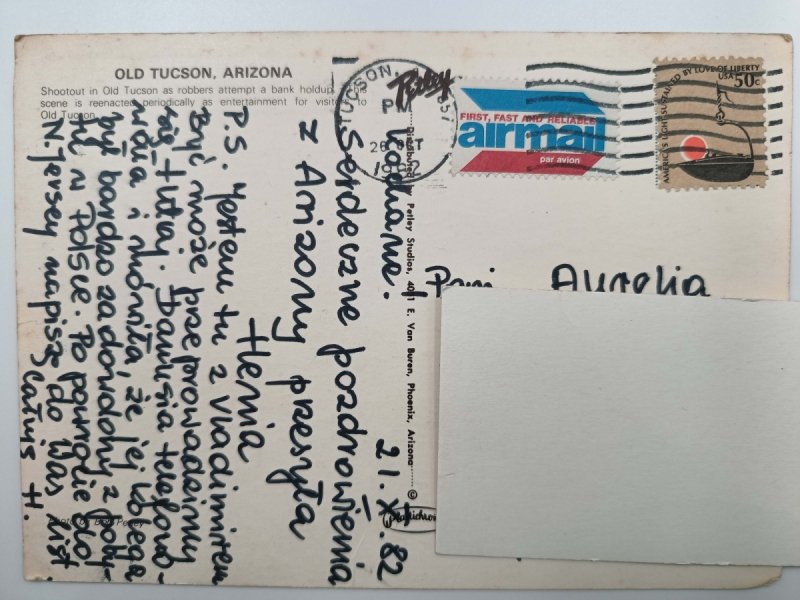 OLD TUCSON, ARIZONA
Shootout in Old Tucson as robbers attempt a bank holdup. This
scene is reenacted periodically as entertainment for visitors to
Old Tucson.
21.X.82
Kochane!
Serdeczne pozdrowienia
z Arizony przesyła
Henia
P.S. Jestem tu z Vladimirem
Być może przeprowadzimy
się tutaj. Danusia telefono-
wała i mówiła, że jej kolega
był bardzo zadowolony z poby-
tu w Polsce. Po powrocie do
N. Jersey napiszę do Was list.
Całuję H.
Distributed by Petley Studios, 4051 E. Van Buren, Phoenix, Arizona
©
Petley
TUCSON,
857
PM
FIRST, FAST AND RELIABLE
airmail
par avion
AMERICA'S LIGHT SUSTAINED BY LOVE OF LIBERTY
USA 50c
Pani Aurelia